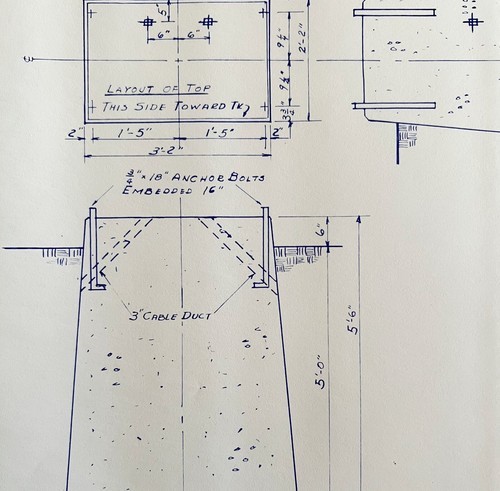 5"
6" 6"
9 1/2"
2'-2"
9 1/2"
3 1/2"
LAYOUT OF TOP
THIS SIDE TOWARD TK
2" 1'-5" 1'-5" 2"
3'-2"
3/4" x 18" ANCHOR BOLTS
EMBEDDED 16"
6"
3" CABLE DUCT
5'-0"
5'-6"